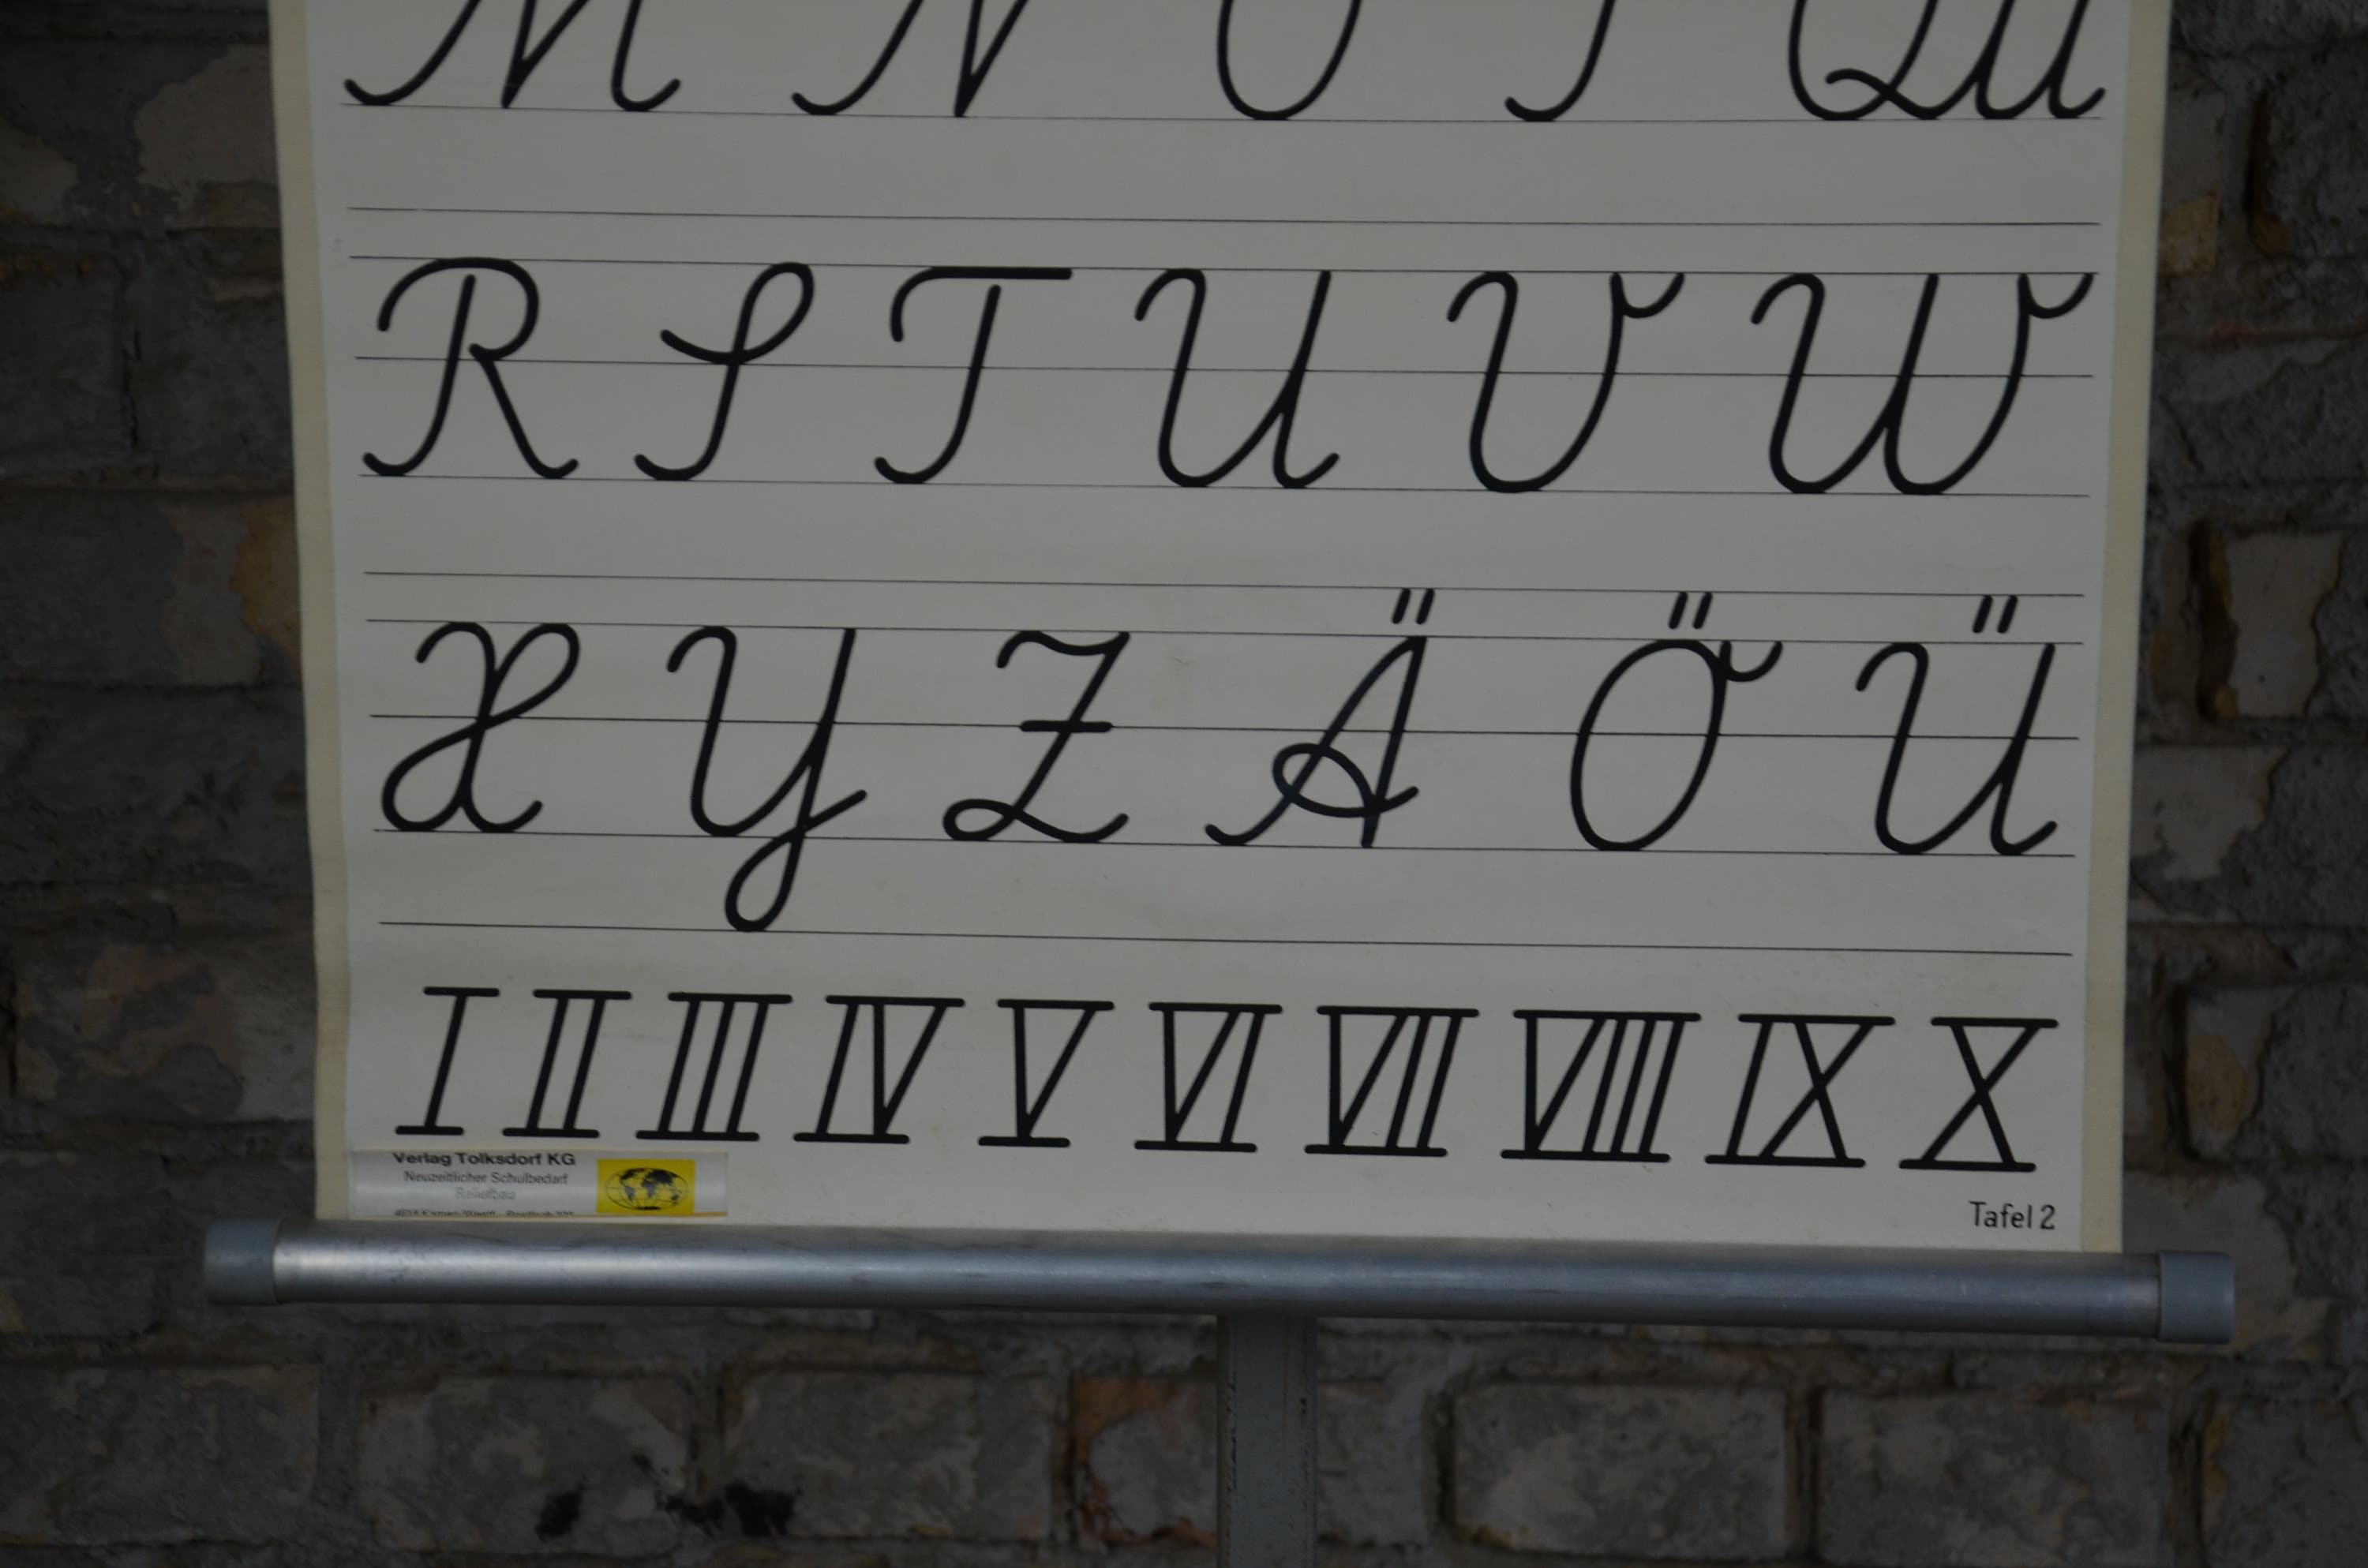 M N O P Qu
R S T U V W
X Y Z Ä Ö Ü
I II III IV V VI VII VIII IX X
Verlag Tolksdorf KG
Neuzeitlicher Schulbedarf
Tafel 2